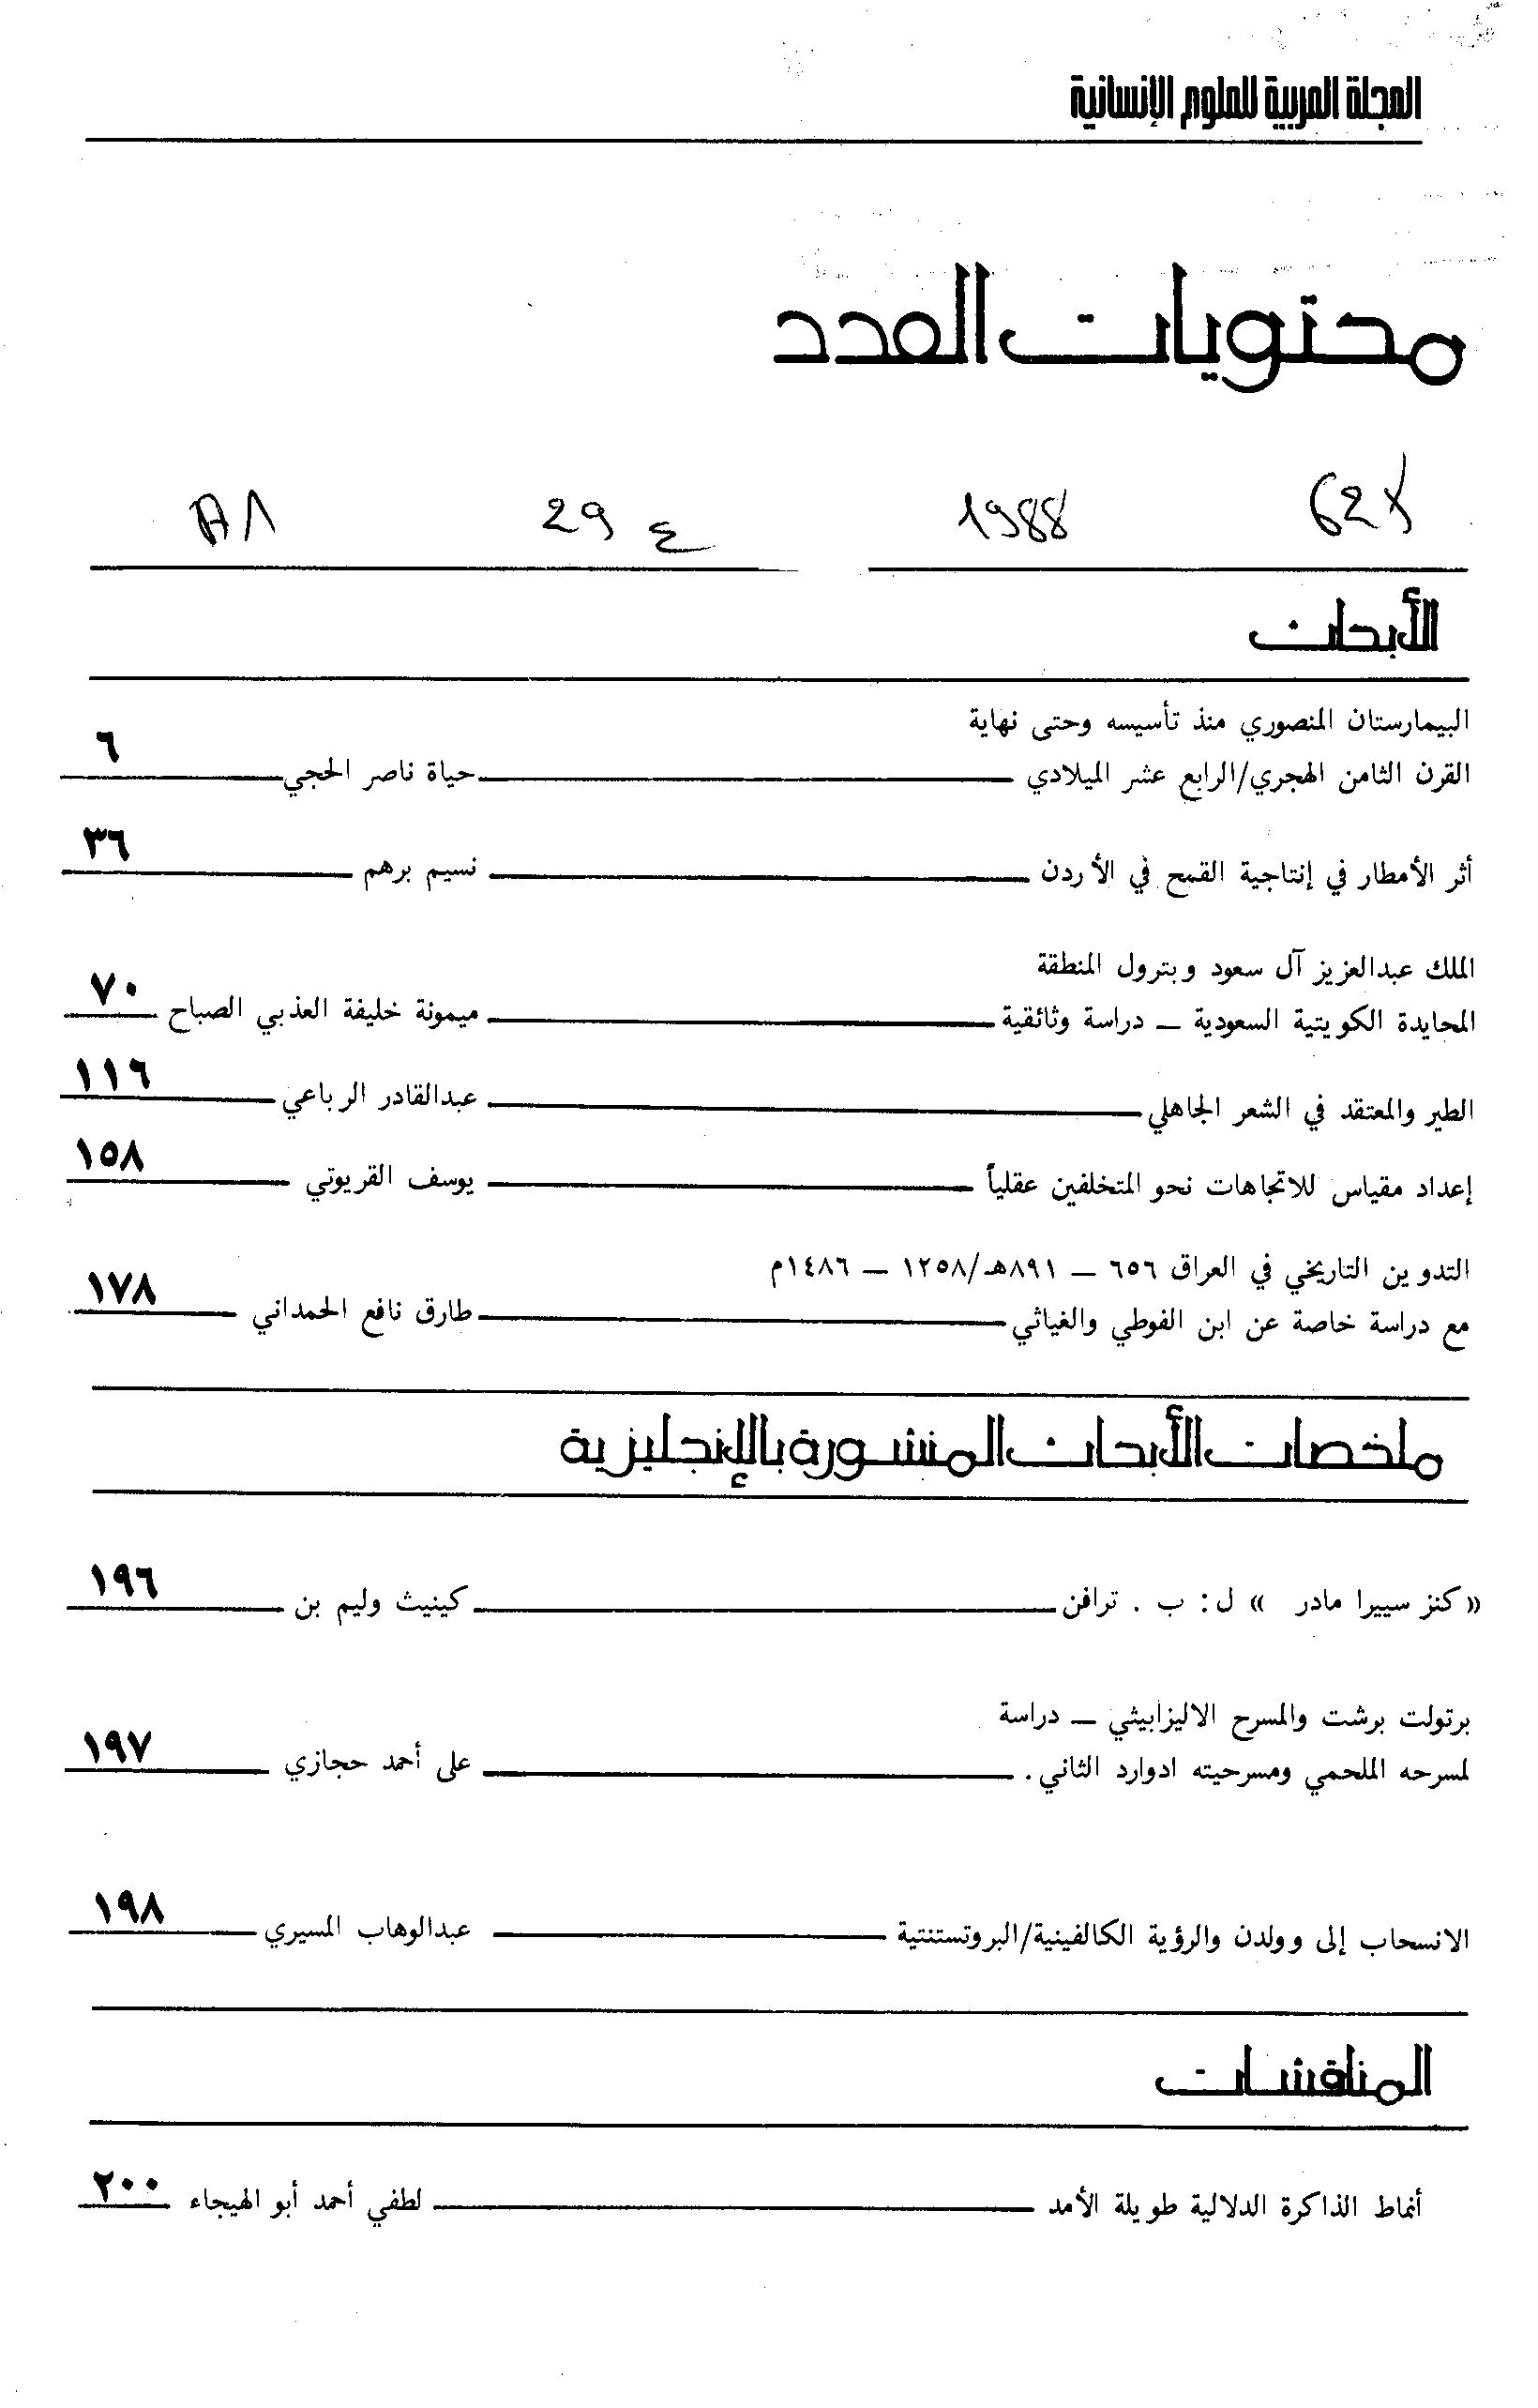 المجلة العربية للعلوم الإنسانية
محتويات العدد
1988 ع 29
الأبحاث
البيمارستان المنصوري منذ تأسيسه وحتى نهاية
القرن الثامن الهجري/الرابع عشر الميلادي حياة ناصر الحجي ٦
أثر الأمطار في إنتاجية القمح في الأردن نسيم برهم ٣٦
الملك عبدالعزيز آل سعود وبترول المنطقة
المحايدة الكويتية السعودية – دراسة وثائقية ميمونة خليفة العذبي الصباح ٧٠
الطير والمعتقد في الشعر الجاهلي عبدالقادر الرباعي ١١٦
إعداد مقياس للاتجاهات نحو المتخلفين عقلياً يوسف القريوتي ١٥٨
التدوين التاريخي في العراق ٦٥٦ – ٨٩١هـ/١٢٥٨ – ١٤٨٦م
مع دراسة خاصة عن ابن الفوطي والغياثي طارق نافع الحمداني ١٧٨
ملخصات الأبحاث المنشورة بالإنجليزية
«كنز سييرا مادر » ل: ب . ترافن كينيث وليم بن ١٩٦
برتولت برشت والمسرح الاليزابيثي – دراسة
لمسرحه الملحمي ومسرحيته ادوارد الثاني . على أحمد حجازي ١٩٧
الانسحاب إلى وولدن والرؤية الكالفينية/البروتستنتية عبدالوهاب المسيري ١٩٨
المناقشات
أنماط الذاكرة الدلالية طويلة الأمد لطفي أحمد أبو الهيجاء ٢٠٠